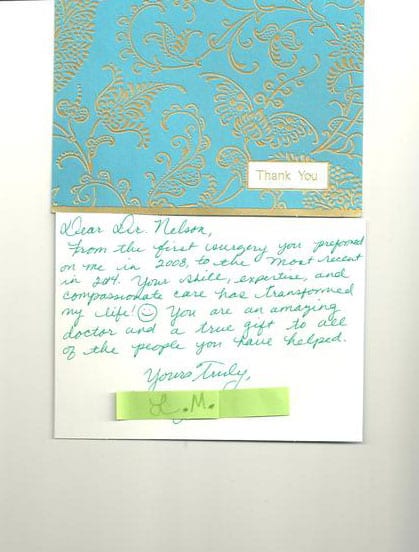 Thank You
Dear Dr. Nelson,
From the first surgery you preformed
on me in 2008, to the most recent
in 2014. Your skill, expertise, and
compassionate care has transformed
my life! You are an amazing
doctor and a true gift to all
of the people you have helped.
Yours Truly,
L.M.